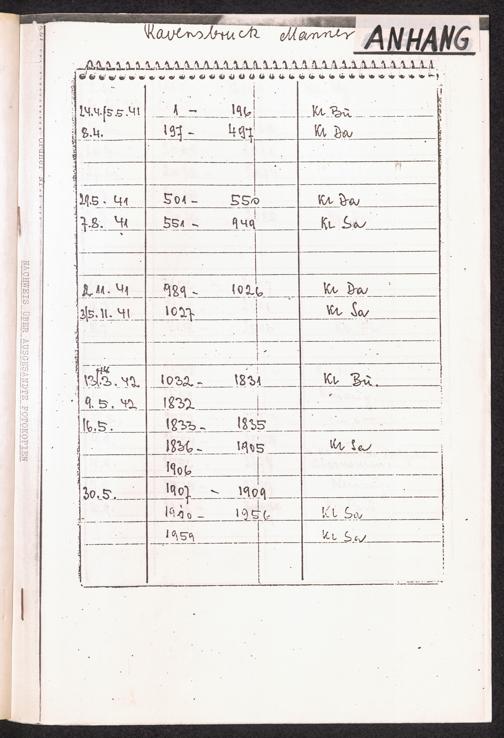 Ravensbrück Männer
ANHANG
24.4./5.5.41 1 - 196 KL Bu
8.4. 197 - 497 KL Da
29.5. 41 501 - 550 KL Da
7.8. 41 551 - 949 KL Sa
2.11. 41 989 - 1026 KL Da
3/5.11. 41 1027 KL Sa
13/3. 42 1032 - 1831 KL Bu.
9.5. 42 1832
16.5. 1833 - 1835
1836 - 1905 KL Sa
1906
30.5. 1907 - 1909
1910 - 1956 KL Sa
1959 KL Sa
NACHWEIS ÜBER AUSGESANDTE FOTOKOPIEN